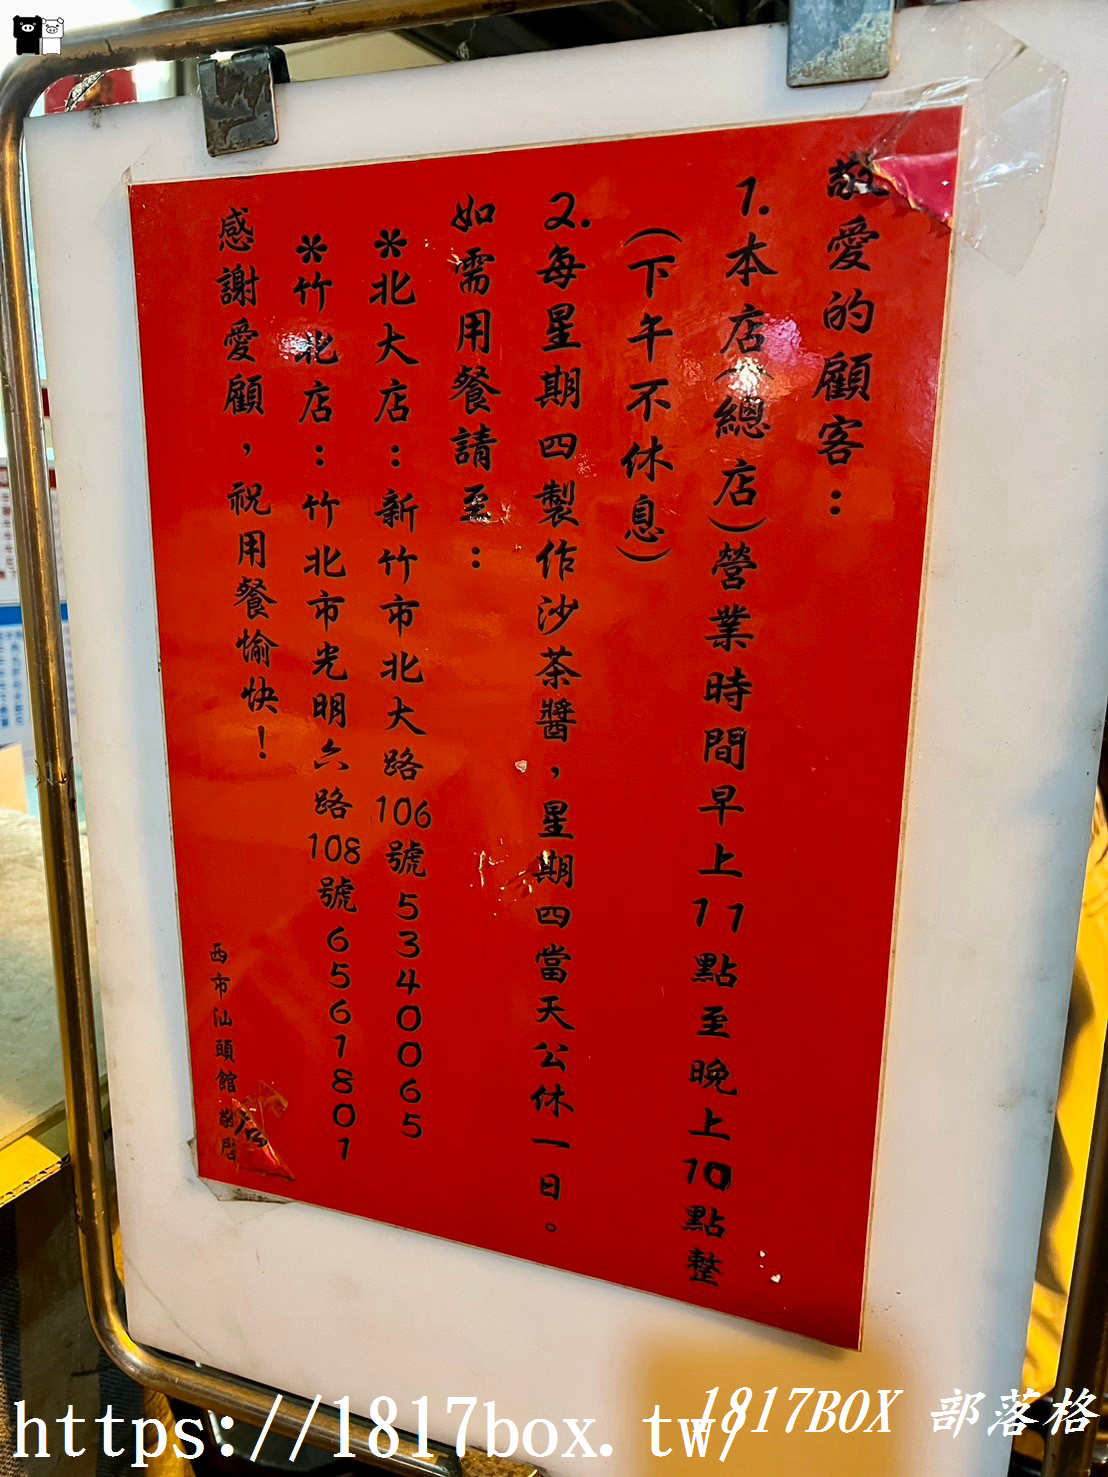 敬愛的顧客：
1.本店(總店)營業時間早上11點至晚上10點整
(下午不休息)
2.每星期四製作沙茶醬，星期四當天公休一日。
如需用餐請至：
＊北大店：新竹市北大路106號5340065
＊竹北店：竹北市光明六路108號6561801
感謝愛顧，祝用餐愉快！
西市汕頭館 敬啟
店
https://1817box.tw/
1817BOX 部落格